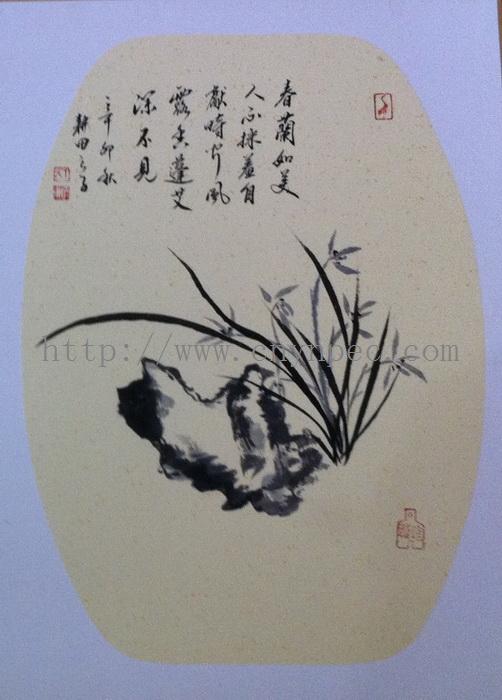 春蘭如美
人不採羞自
獻時聞風
露香蓬艾
深不見
辛卯秋
耕田
http://www.cnynpeq.com